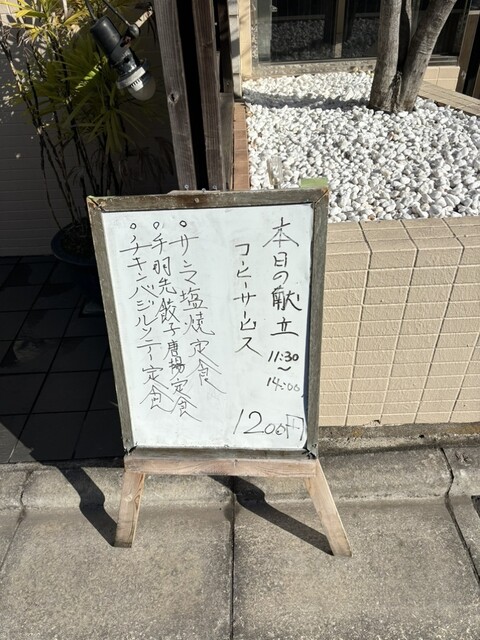 本日の献立
11:30
〜
14:00
コーヒーサービス
。サンマ塩焼定食
。手羽先餃子唐揚定食
。チキンバジルソテー定食
1200円